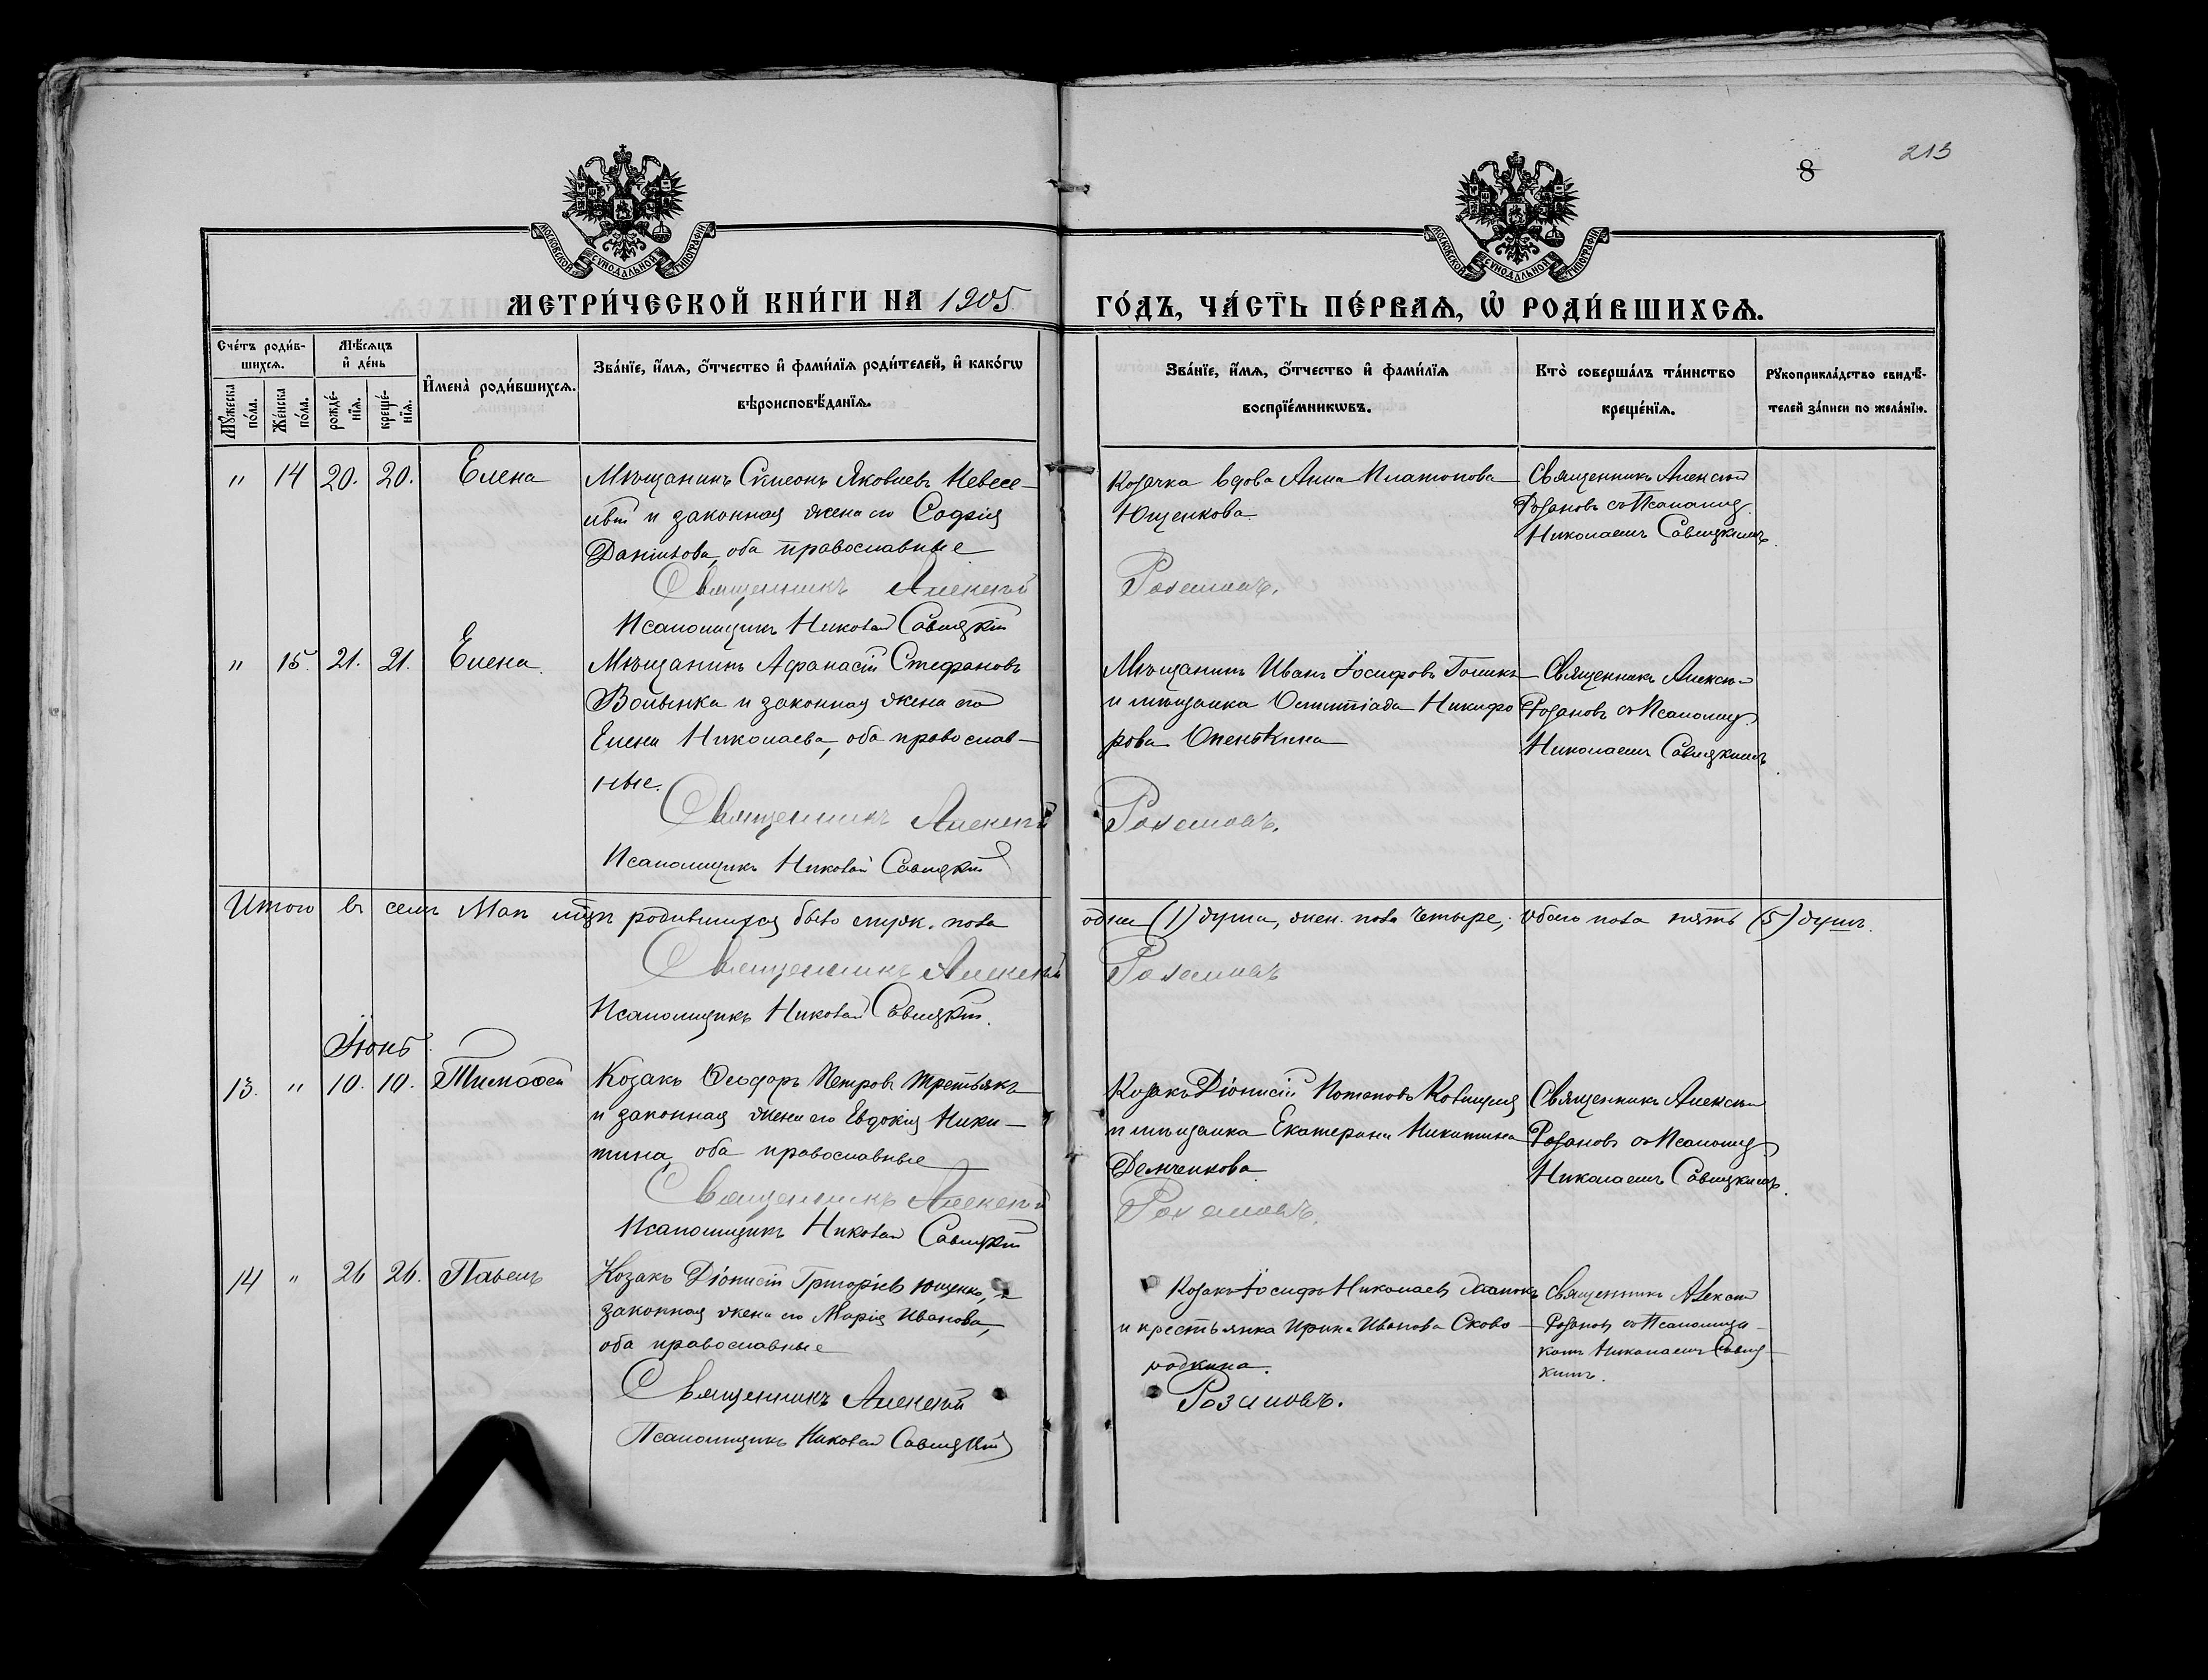 8
213
МОСКОВСКОЙ СѴНОДАЛЬНОЙ ТИПОГРАФІИ
МОСКОВСКОЙ СѴНОДАЛЬНОЙ ТИПОГРАФІИ
МЕТРИ́ЧЕСКОЙ КНИ́ГИ НА 1905
ГО́ДЪ, ЧА́СТЬ ПЕ́РВАѦ, Ѿ РОДИ́ВШИХСѦ.
Сче́тъ роди́в-
шихсѧ.
Мꙋ́жеска по́ла.
Же́нска по́ла.
Мѣ́сѧцъ
и҆ де́нь
рожде́-
нїѧ.
креще́-
нїѧ.
И҆мена̀ роди́вшихсѧ.
Зва́нїе, и҆́мѧ, ѻ҆́тчество и҆ фами́лїѧ роди́телей, и҆ како́гѡ
вѣроисповѣ́данїѧ.
Зва́нїе, и҆́мѧ, ѻ҆́тчество и҆ фами́лїѧ
воспрїе́мникѡвъ.
Кто̀ соверша́лъ та́инство
креще́нїѧ.
Рꙋкоприкла́дство свидѣ́-
телей за́писи по жела́нїю.
" 14 20. 20. Елена
Мѣщанинъ Симеонъ Яковлевъ Невесе-
и законная жена его Софія
Данилова, оба православные
Священникъ Алексѣй
Псаломщикъ Николай Савицкій
Козачка вдова Анна Платонова
Ющенкова.
Розановъ.
Священникъ Алексѣй
Розановъ съ Псаломщ.
Николаемъ Савицкимъ.
" 15. 21. 21. Елена.
Мѣщанинъ Афанасій Стефановъ
Волынка и законная жена его
Елена Николаева, оба православ-
ные.
Священникъ Алексѣй
Псаломщикъ Николай Савицкій
Мѣщанинъ Иванъ Іосифовъ
и мѣщанка Олимпіада Никифо
рова Опенькина
Розановъ.
Священникъ Алексѣй
Розановъ съ Псаломщ.
Николаемъ Савицкимъ.
Итого въ семъ Маѣ м-цѣ родившихся было муж. пола
одна (1) душа, жен. пола четыре, обоего пола пять (5) душъ.
Священникъ Алексѣй
Розановъ
Псаломщикъ Николай Савицкій.
Іюнь.
13. " 10. 10. Тимофей
Козакъ Ѳеодоръ Петровъ Третьякъ
и законная жена его Евдокія Ники-
тина, оба православные
Священникъ Алексѣй
Псаломщикъ Николай Савицкій
Козакъ Діонисій Потаповъ
и мѣщанка Екатерина Никитина
Демченкова.
Розановъ.
Священникъ Алексѣй
Розановъ съ Псаломщ.
Николаемъ Савицкимъ.
14 " 26 26. Павелъ
Козакъ Діонисій Григоріевъ Ющенко, и
законная жена его Марія Иванова,
оба православные
Священникъ Алексѣй
Псаломщикъ Николай Савицкій
Козакъ Іосифъ Николаевъ
и крестьянка Ирина Иванова Сково-
родкина.
Розановъ.
Священникъ Алексѣй
Розановъ съ Псаломщи-
комъ Николаемъ Савиц-
кимъ.